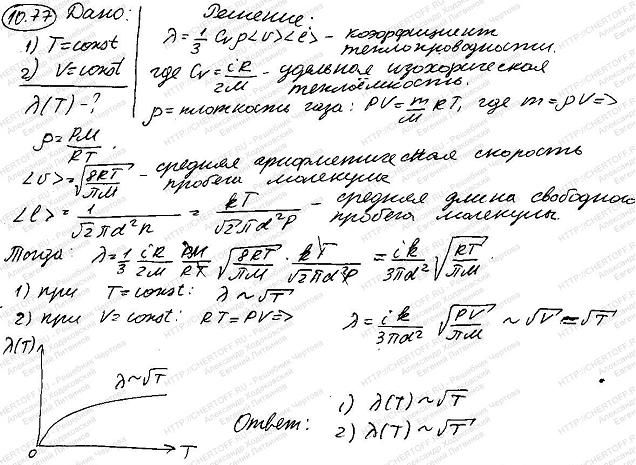 10.77 Дано:
1) T=const
2) V=const
λ(T)-?
Решение:
λ=1/3 Cv ρ<v><l> - коэффициент теплопроводности.
где Cv = iR/2M - удельная изохорическая теплоёмкость.
ρ = плотность газа: PV = m/M RT, где m = ρV =>
ρ = PM/RT
<v> = √(8RT/πM) - средняя арифметическая скорость пробега молекул
<l> = 1/(√2πd²n) = kT/(√2πd²P) - средняя длина свободного пробега молекулы.
Тогда: λ = 1/3 iR/2M PM/RT √(8RT/πM) · kT/(√2πd²P) = ik/3πd² √(RT/πM).
1) при T=const: λ ~ √T
2) при V=const: RT=PV => λ = ik/3πd² √(PV/πM) ~ √V = √T
λ(T)
λ~√T
0
T
Ответ: 1) λ(T)~√T
2) λ(T)~√T